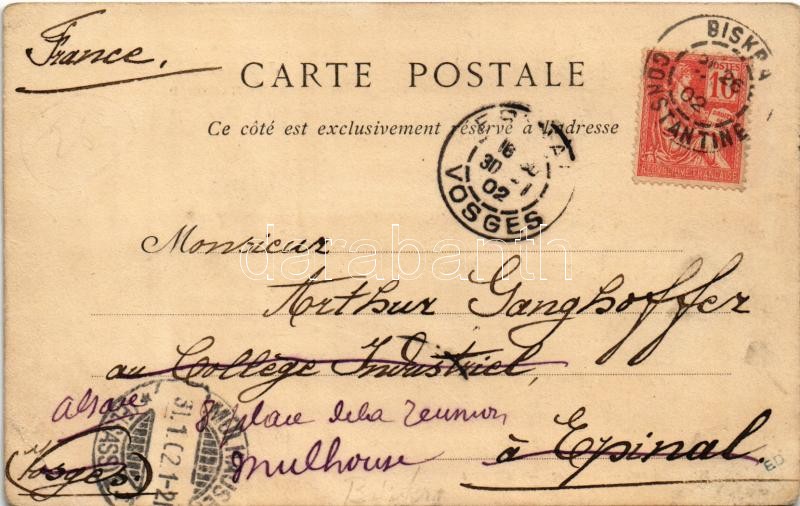 France.
CARTE POSTALE
Ce côté est exclusivement réservé à l'adresse
BISKRA
26
02
CONSTANTINE
POSTES
10
REPUBLIQUE FRANÇAISE
EPINAL
16
30
02
VOSGES
darabanth
Monsieur
Arthur Ganghoffer
au Collège Industriel,
Alsace 8 place de la reunion
(Vosges) Mulhouse à Epinal.
31.1.02.1-2